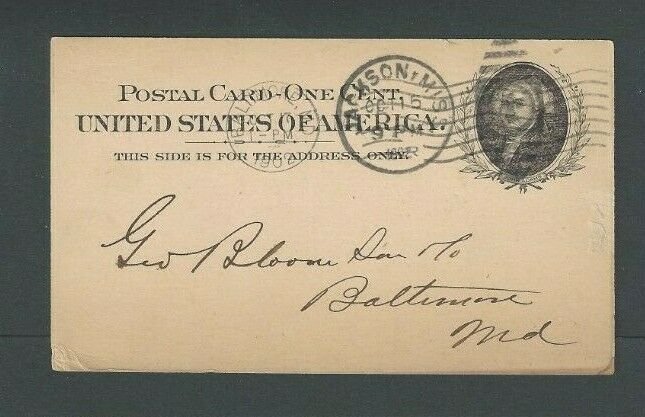 POSTAL CARD-ONE CENT.
UNITED STATES OF AMERICA.
THIS SIDE IS FOR THE ADDRESS ONLY.
JACKSON, MISS.
OCT 15
1902
PM
1902
Geo Bloome Son & Co
Baltimore
Md